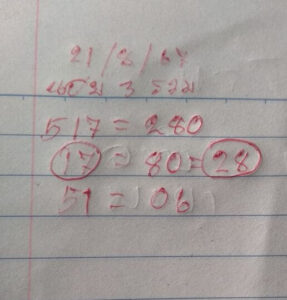 21/8/67
517=280
17=80=28
51=06